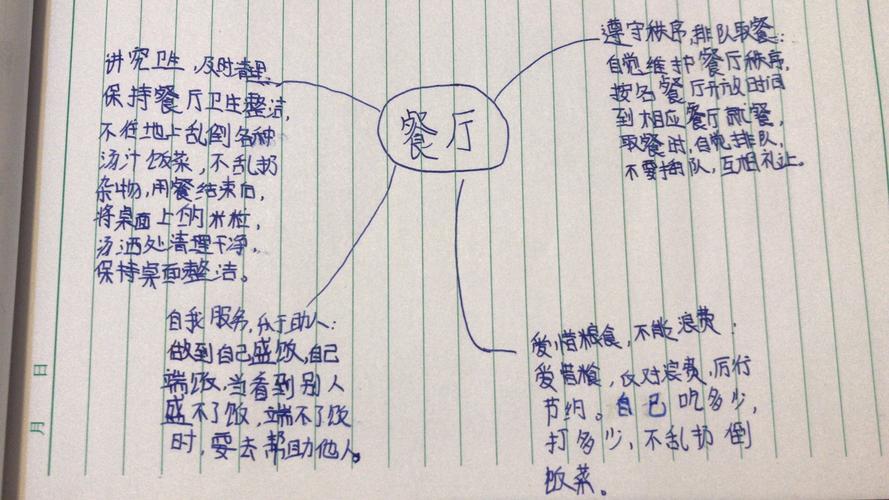 餐厅
讲究卫生,及时清理:
保持餐厅卫生整洁,
不在地上乱倒各种
汤汁饭菜,不乱扔
杂物,用餐结束后,
将桌面上的米粒,
汤洒处清理干净,
保持桌面整洁。
遵守秩序,排队取餐:
自觉维护餐厅秩序,
按各餐厅开放时间
到相应餐厅就餐,
取餐时,自觉排队,
不要插队,互相礼让。
自我服务,乐于助人:
做到自己盛饭,自己
端饭,当看到别人
盛不了饭,端不了饭
时,要去帮助他人。
爱惜粮食,不能浪费:
爱惜粮,反对浪费,厉行
节约。自己吃多少,
打多少,不乱扔倒
饭菜。
日
月